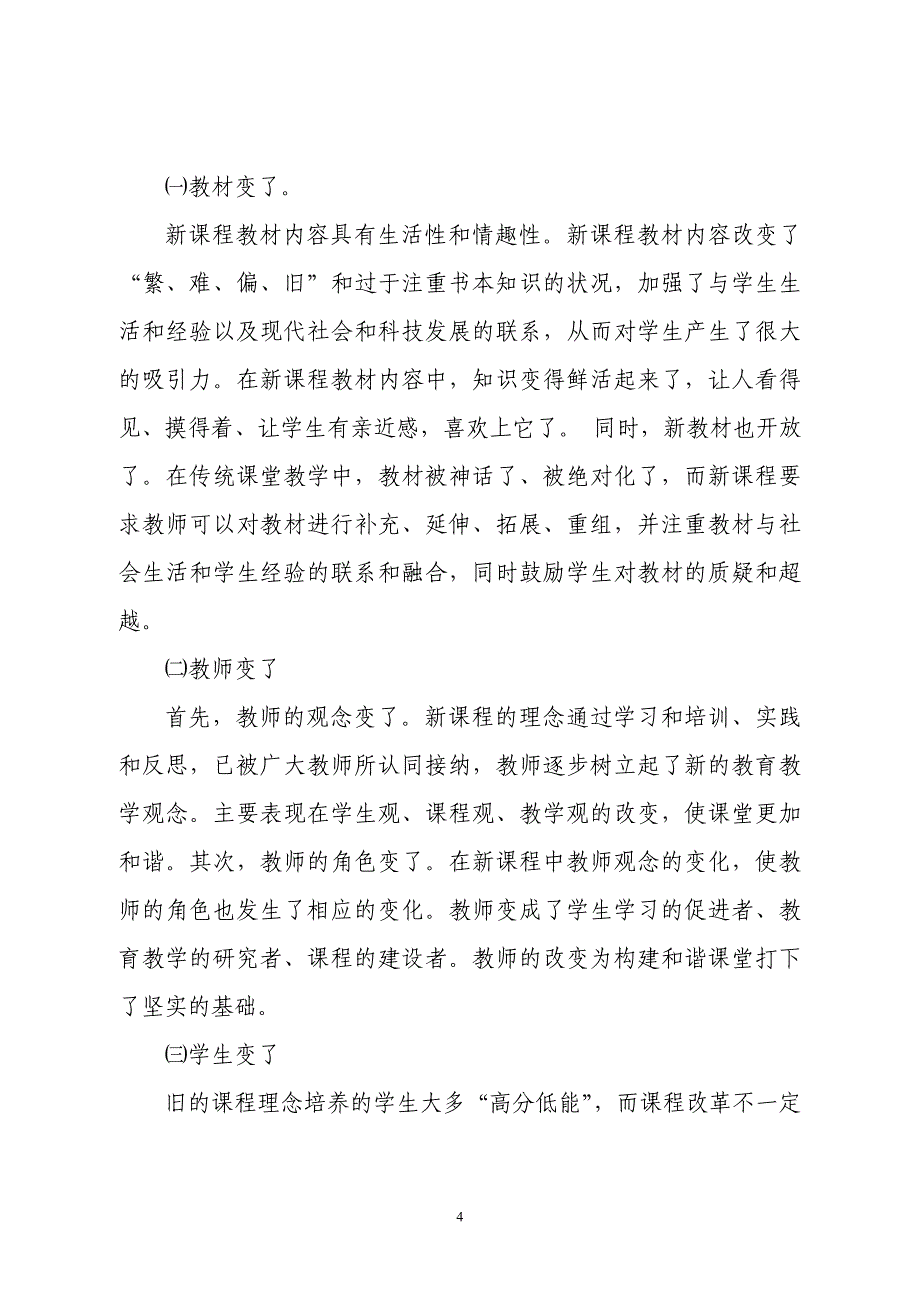 ㈠教材变了。
新课程教材内容具有生活性和情趣性。新课程教材内容改变了
“繁、难、偏、旧”和过于注重书本知识的状况，加强了与学生生
活和经验以及现代社会和科技发展的联系，从而对学生产生了很大
的吸引力。在新课程教材内容中，知识变得鲜活起来了，让人看得
见、摸得着、让学生有亲近感，喜欢上它了。 同时，新教材也开放
了。在传统课堂教学中，教材被神话了、被绝对化了，而新课程要
求教师可以对教材进行补充、延伸、拓展、重组，并注重教材与社
会生活和学生经验的联系和融合，同时鼓励学生对教材的质疑和超
越。
㈡教师变了
首先，教师的观念变了。新课程的理念通过学习和培训、实践
和反思，已被广大教师所认同接纳，教师逐步树立起了新的教育教
学观念。主要表现在学生观、课程观、教学观的改变，使课堂更加
和谐。其次，教师的角色变了。在新课程中教师观念的变化，使教
师的角色也发生了相应的变化。教师变成了学生学习的促进者、教
育教学的研究者、课程的建设者。教师的改变为构建和谐课堂打下
了坚实的基础。
㈢学生变了
旧的课程理念培养的学生大多“高分低能”，而课程改革不一定
4